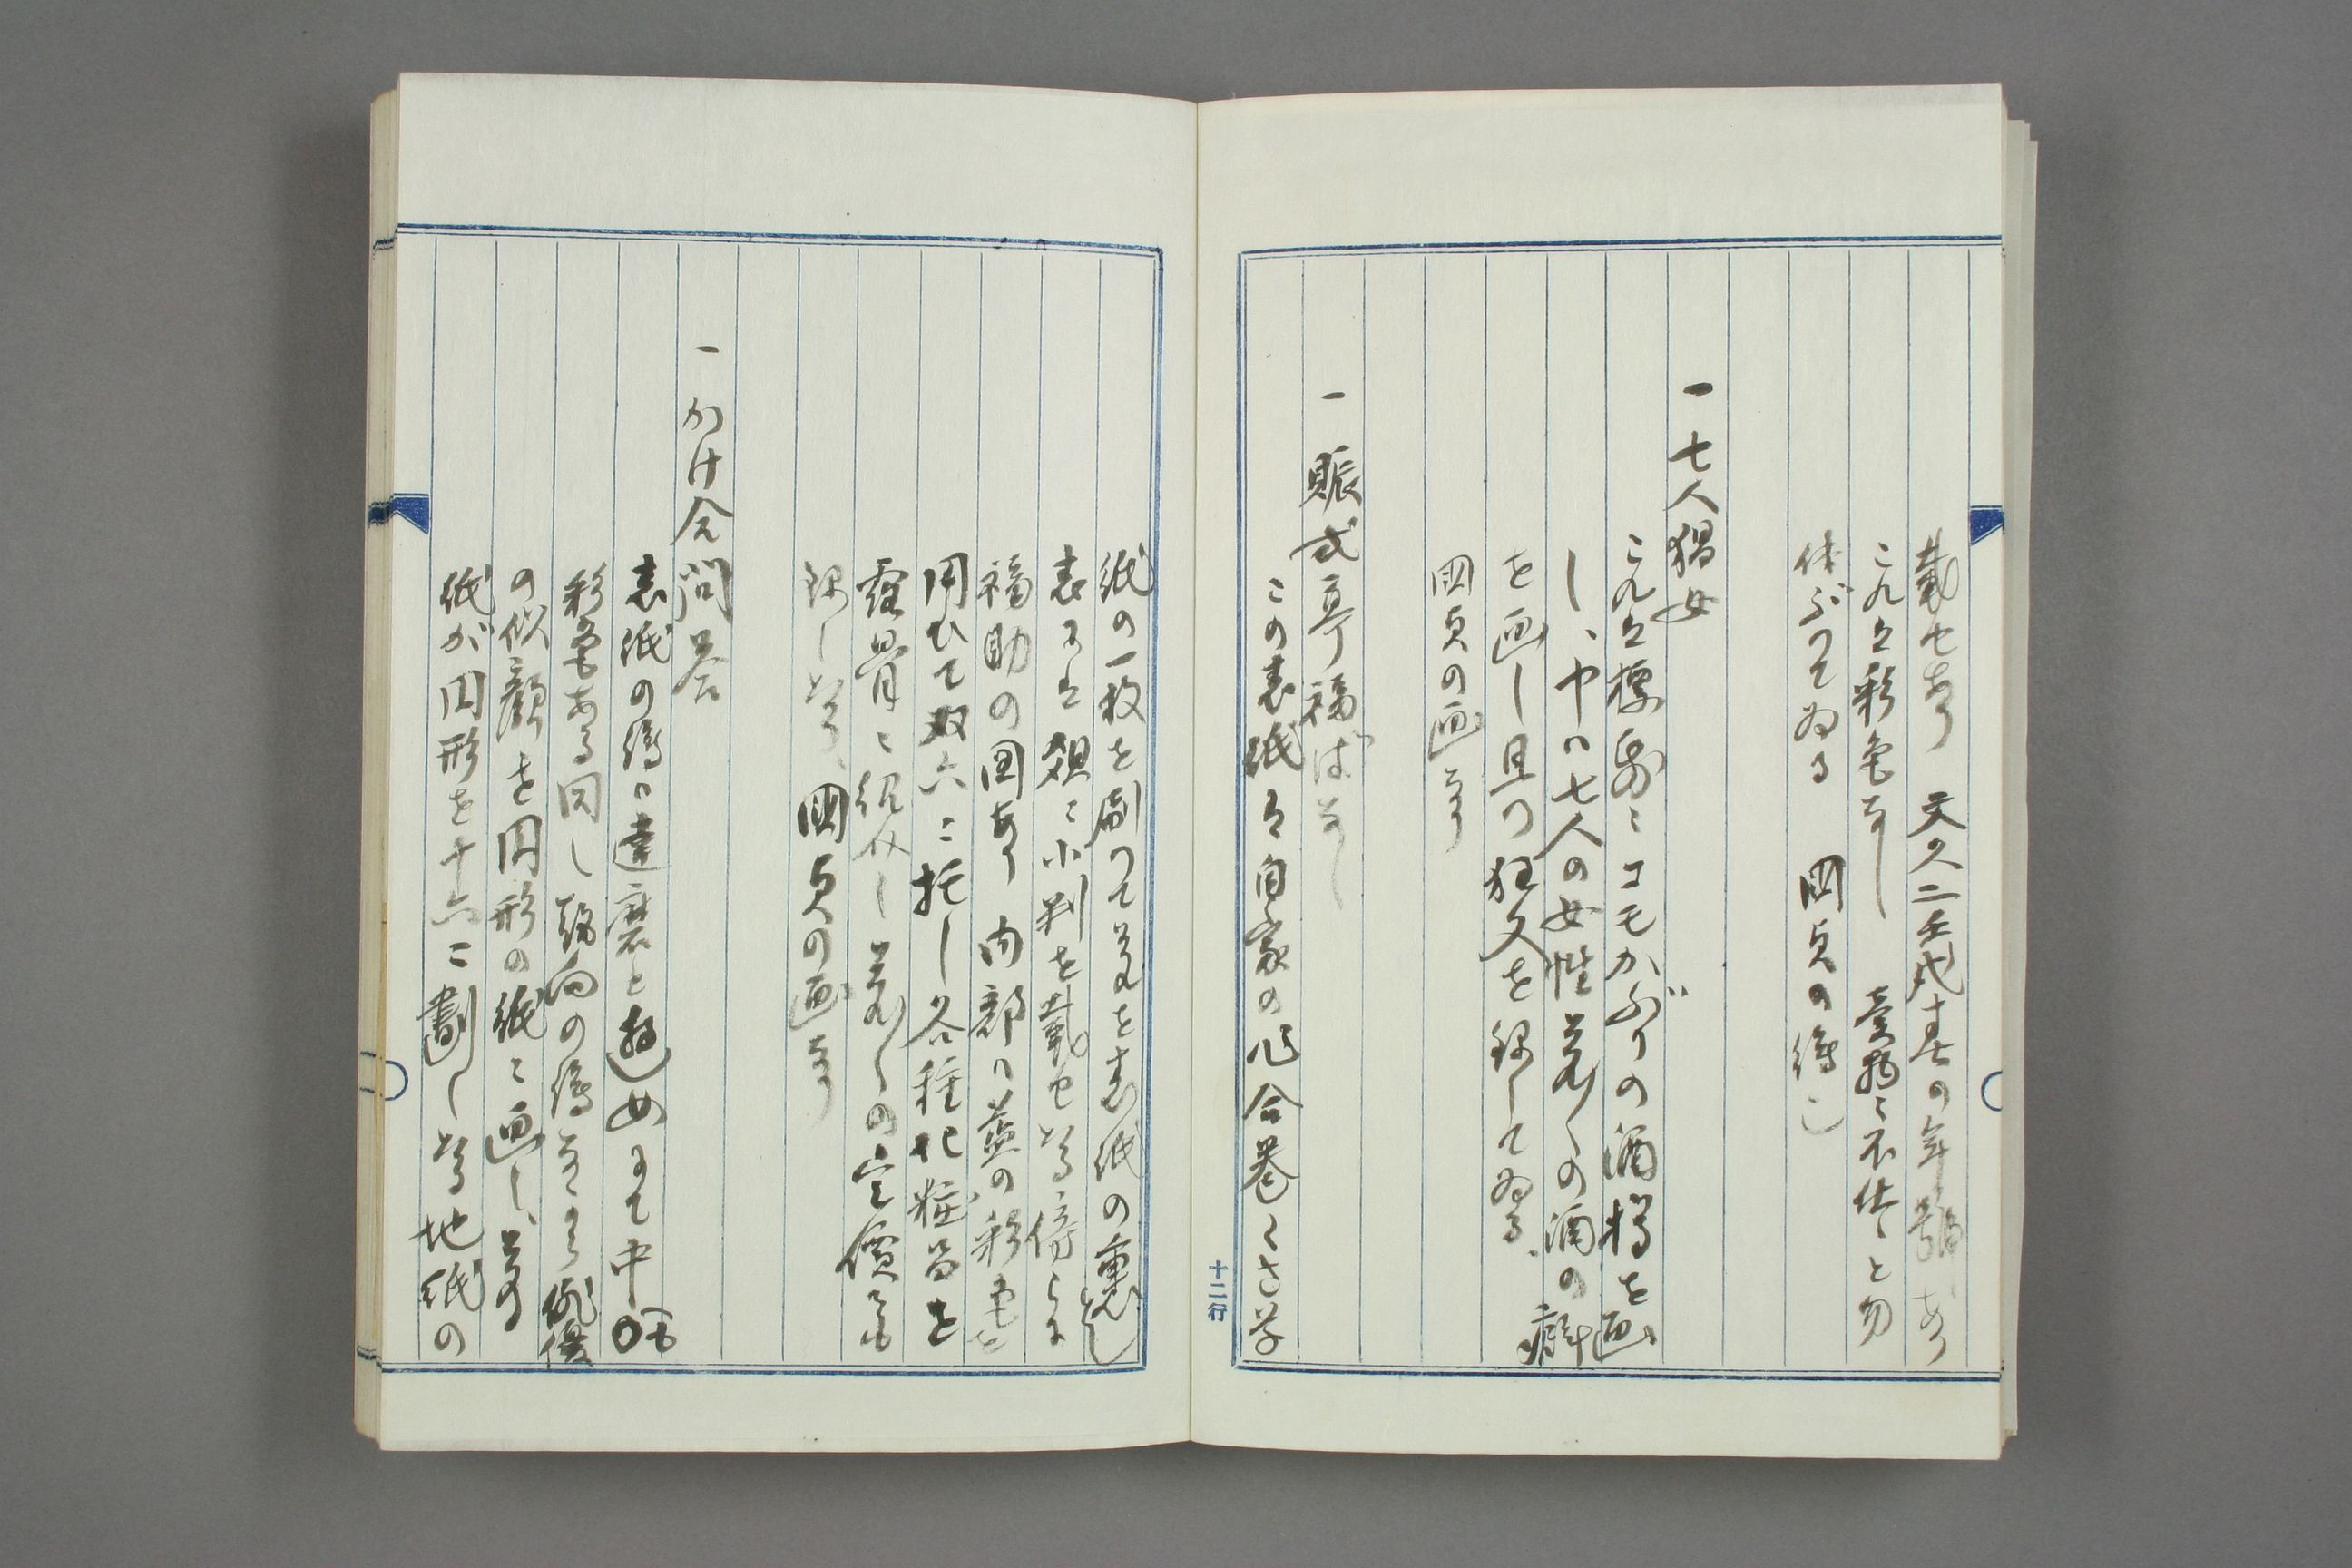 載せあり 文久二壬戌春の年号あり
これは彩色なし 童謡に不体と勿
体ぶつてゐる 国貞の絵也
一 七人猩女
これは標帋にコモかぶりの酒樽を画
し、中に七人の女性夫々の酒の癖
を画し且つ狂文を録してゐる、
国貞の画なり
一 賑式亭福ばなし
この表紙は自家の作合巻くさ草
紙の一枚を刷つて夫を表紙の裏とし
表には裃に小判を戴せたる傍らに
福助の図あり 内部に藍の彩色を
用ひて双六に托し各種化粧品を
露骨に紹介し夫々の定價をも
録したり、国貞の画なり
一 かけ合問答
表紙の絵に達磨と遊女にて中々
彩色もある同し趣向の絵なるも俳優
の似顔を円形の紙に画し、夫
紙が円形を十六に劃したる地紙の
十二行